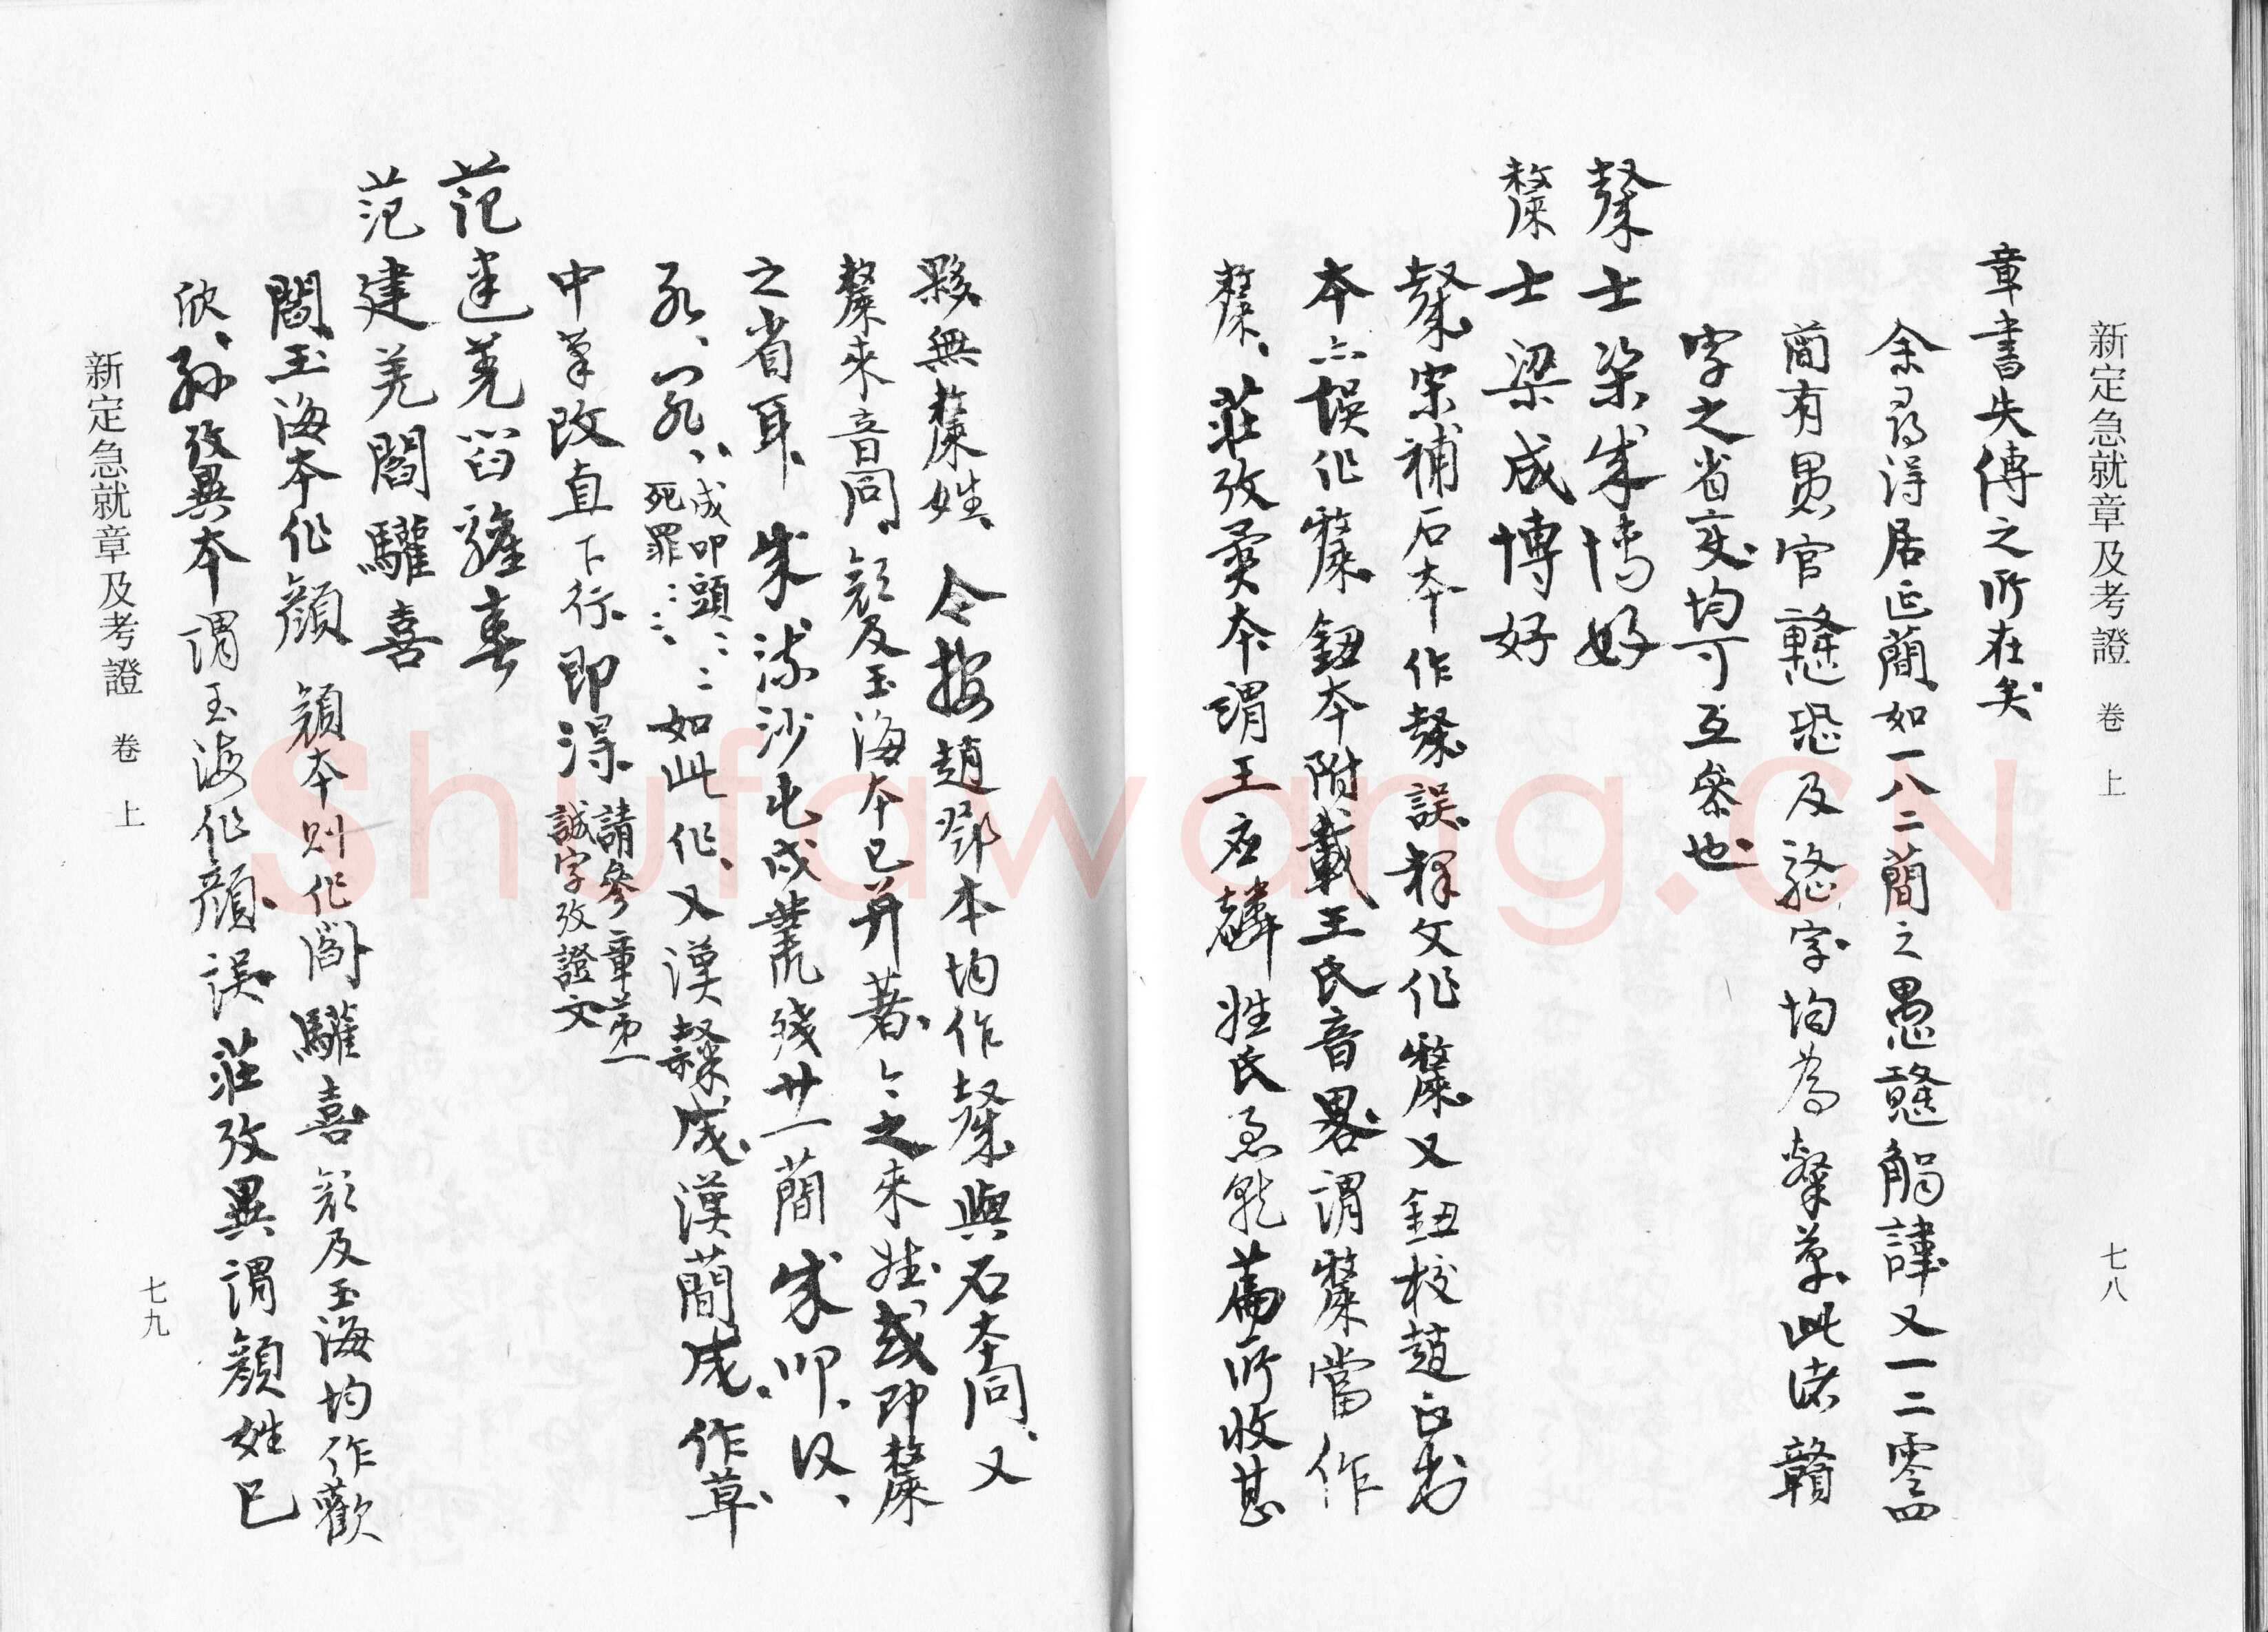 新定急就章及考證 卷上 七八
章書失傳之所在矣
余尋得居延簡如一八二簡之愚戇觸諱又一二零四
簡有愚官戇恐及
字均為
草此諸贛
字之省變均可互參也
士梁成博好
士梁成博好
宋補石本作
誤釋文作
又鈕校趙正書
本亦誤作
鈕本附載王氏音畧謂
當作
莊攷異本謂王應麟姓氏急就篇所收甚
夥無
姓今按趙鄧本均作
與石本同又
來音同顏及玉海本已并著
之來姓或即
之省耳
成流沙屯戍叢殘廿一簡成叩
死罪
成叩頭
如此作又漢隸成漢簡成作草
中筆改直下行即得
請參章第一
誠字攷證文
范建羌閻驩喜
范建羌閻驩喜
閻玉海本作顏
顏本則作閻驩喜顏及玉海均作歡
欣孫攷異本謂玉海作顏誤莊攷異謂顏姓已
新定急就章及考證 卷上 七九
Shufawang.CN